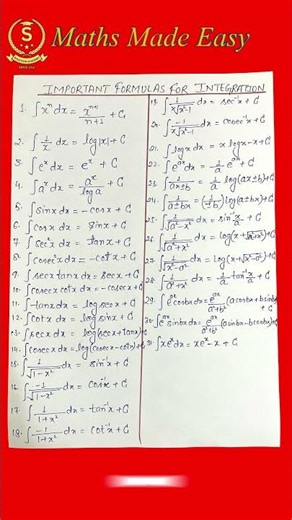 S
Maths Made Easy
IMPORTANT FORMULAS FOR INTEGRATION
1. ∫xⁿdx = xⁿ⁺¹/n+1 + C
2. ∫1/x dx = log|x| + C
3. ∫eˣdx = eˣ + C
4. ∫aˣdx = aˣ/log a + C
5. ∫sinx dx = -cosx + C
6. ∫cosx dx = sinx + C
7. ∫sec²x dx = tanx + C
8. ∫cosec²x dx = -cotx + C
9. ∫secx tanx dx = secx + C
10. ∫cosecx cotx dx = -cosecx + C
11. ∫tanx dx = log secx + C
12. ∫cotx dx = log sinx + C
13. ∫secx dx = log(secx+tanx)+C
14. ∫cosecx dx = log(cosecx-cotx)+C
15. ∫1/√1-x² dx = sin⁻¹x + C
16. ∫-1/√1-x² dx = cos⁻¹x + C
17. ∫1/1+x² dx = tan⁻¹x + C
18. ∫-1/1+x² dx = cot⁻¹x + C
19. ∫1/x√x²-1 dx = sec⁻¹x + C
20. ∫-1/x√x²-1 dx = cosec⁻¹x + C
21. ∫log x dx = x log x - x + C
22. ∫eᵃˣdx = 1/a eᵃˣ + C
23. ∫1/ax±b = 1/a log(ax±b)+C
24. ∫1/a±bx = 1/(±b) log(a±bx)+C
25. ∫1/√a²-x² dx = sin⁻¹x/a + C
26. ∫1/√a²+x² dx = log(x+√x²+a²)+C
27. ∫1/√x²-a² dx = log(x+√x²-a²)+C
28. ∫1/a²+x² dx = 1/a tan⁻¹x/a + C
29. ∫eᵃˣcosbx dx = eᵃˣ/a²+b² (acosbx+bsinbx)+C
30. ∫eᵃˣsinbx dx = eᵃˣ/a²+b² (asinbx-bcosbx)+C
31. ∫xeˣdx = xeˣ - x + C